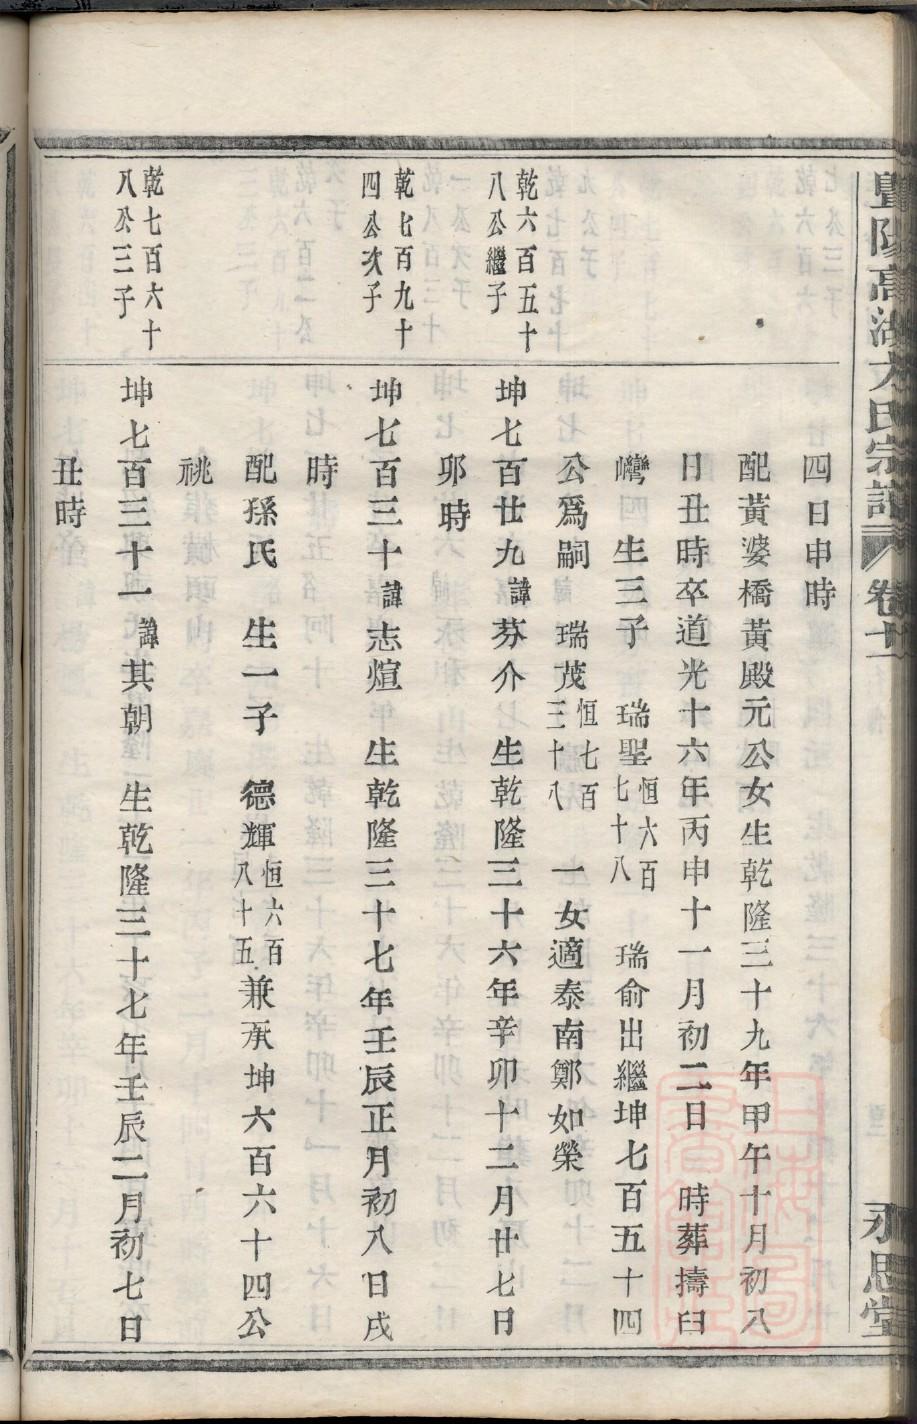 暨陽高湖方氏宗譜 卷十二 永思堂
四日申時
配黃婆橋黃殿元公女生乾隆三十九年甲午十月初八
日丑時卒道光十六年丙申十一月初二日 時葬擣臼
嶹 生三子 瑞聖恒六百七十八 瑞俞出繼坤七百五十四
公爲嗣 瑞茂恒七百三十八 一女適泰南鄭如榮
乾六百五十八公繼子
坤七百廿九諱芬介 生乾隆三十六年辛卯十二月廿七日
卯時
乾七百九十四公次子
坤七百三十諱志煊 生乾隆三十七年壬辰正月初八日戌
時
配孫氏 生一子 德輝恒六百八十五兼承坤六百六十四公
祧
乾七百六十八公三子
坤七百三十一諱其朝 生乾隆三十七年壬辰二月初七日
丑時